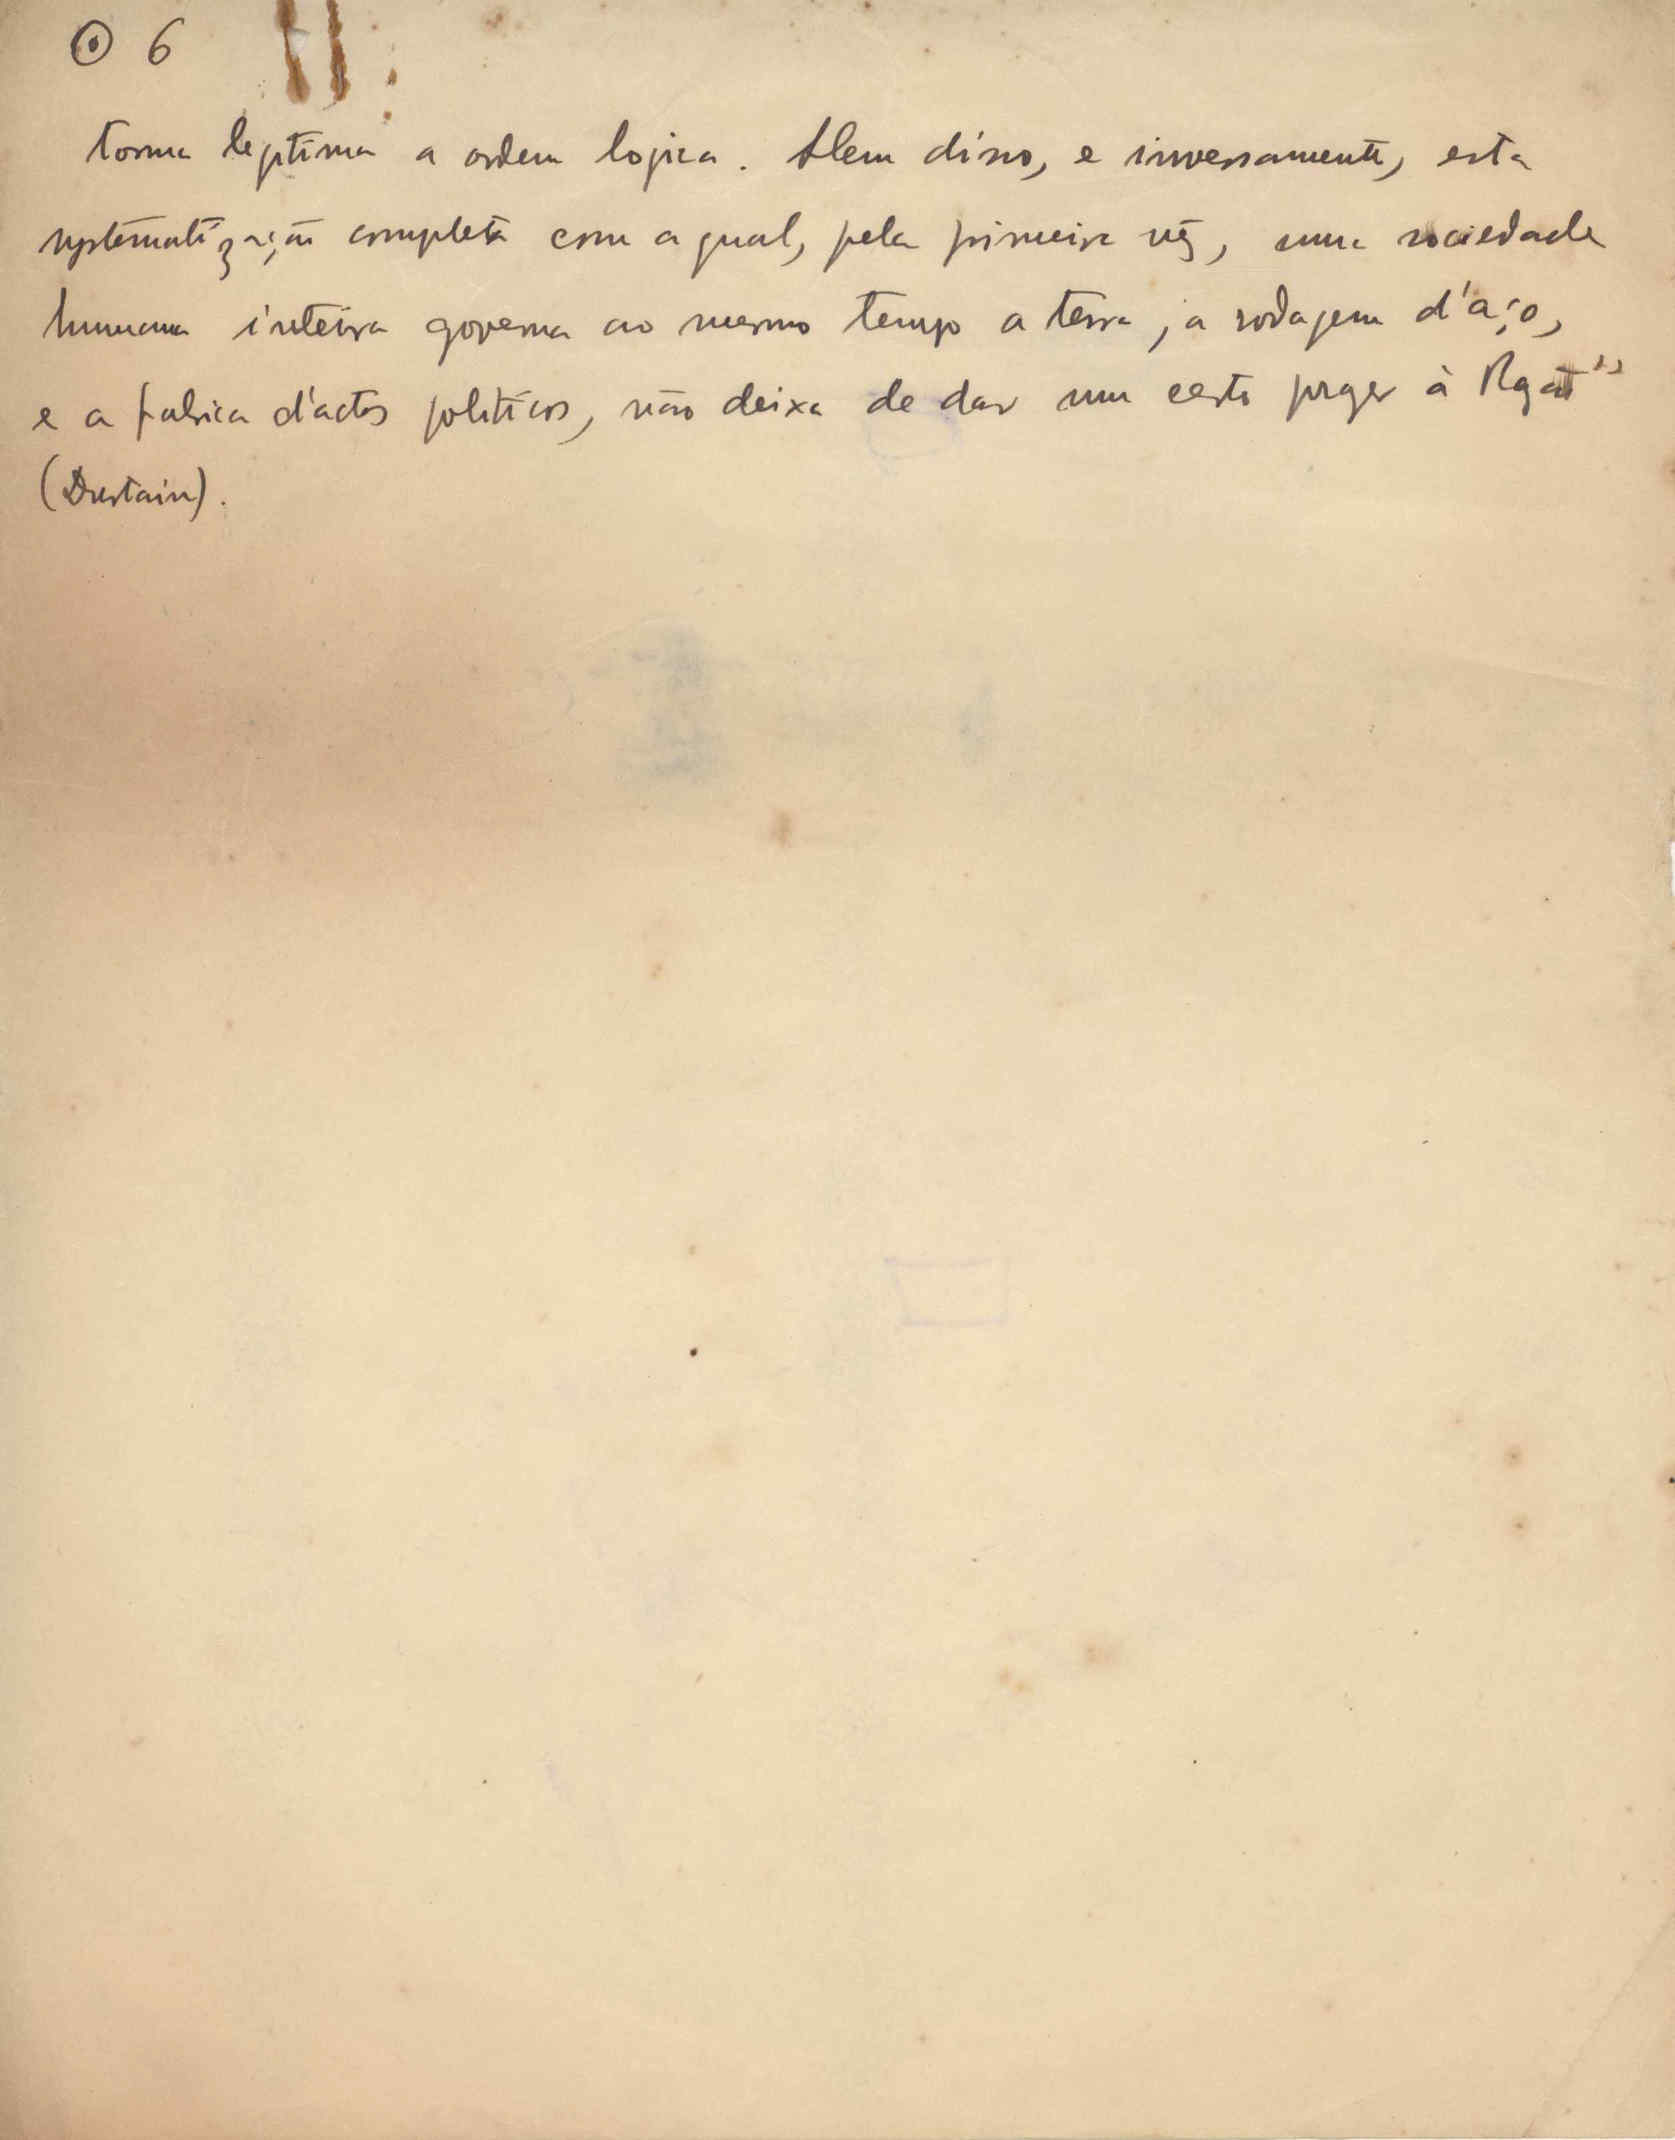 ⊙ 6
torna legitima a ordem logica. Alem disso, e inversamente, esta
systematização completa com a qual, pela primeira vez, uma sociedade
humana inteira governa ao mesmo tempo a terra, a rodagem d'aço,
e a fabrica d'actos politicos, não deixa de dar um certo prazer à
(Durtain).